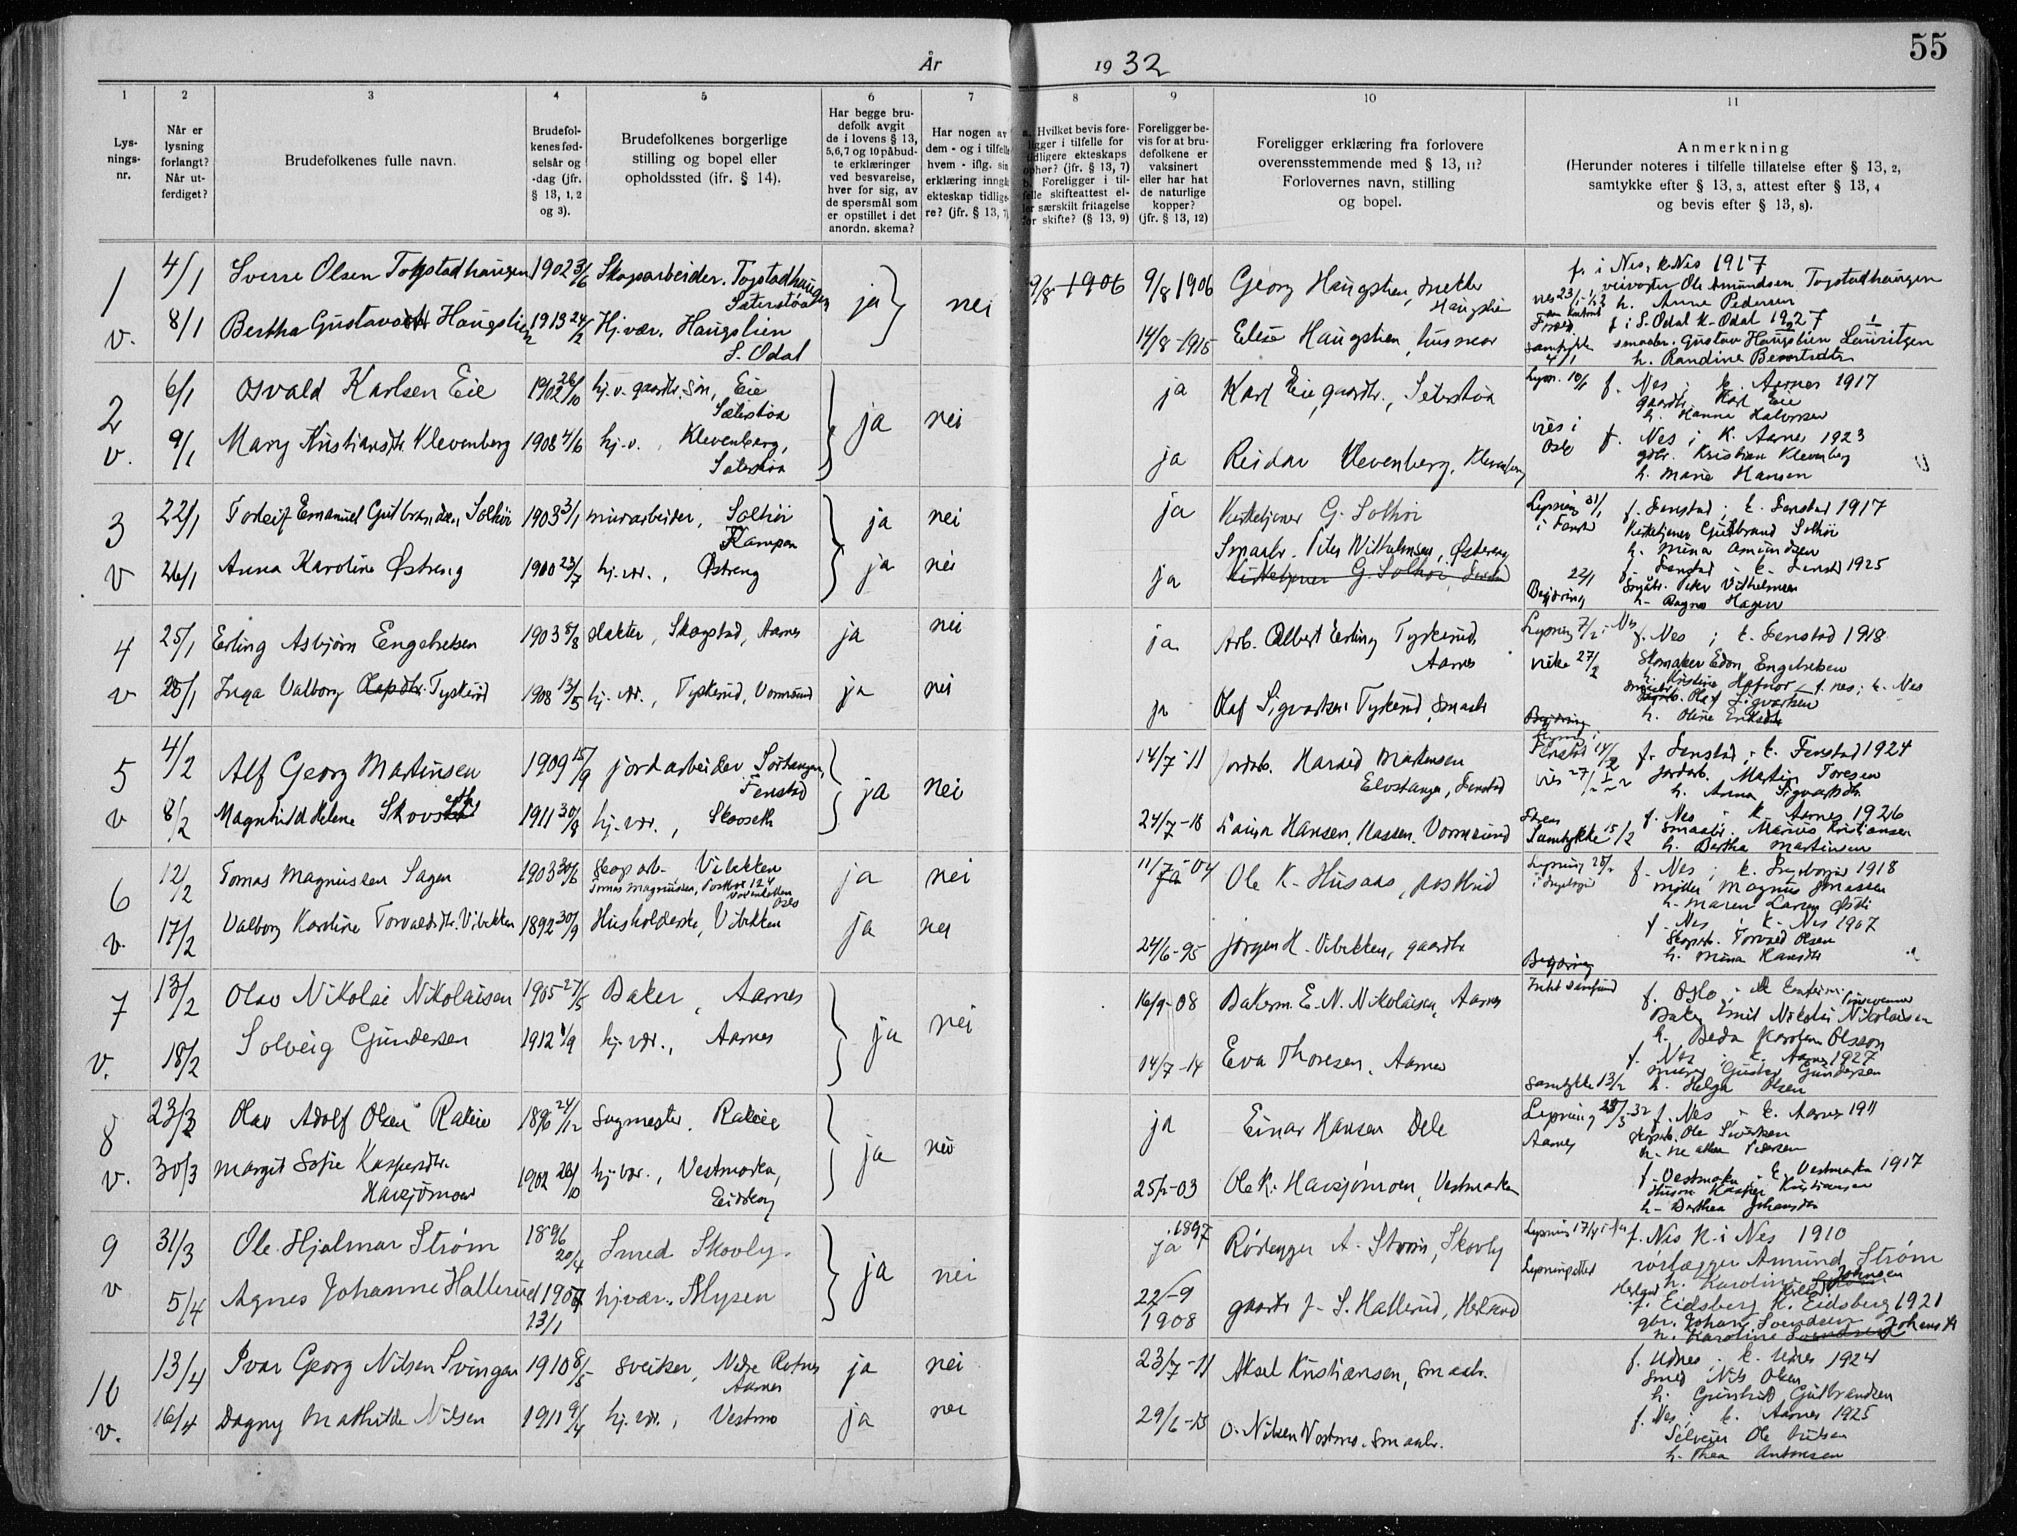 55
År 1932
1
2
3
4
5
6
7
8
9
10
11
Lys-
nings-
nr.
Når er
lysning
forlangt?
Når ut-
ferdiget?
Brudefolkenes fulle navn.
Brudefol-
kenes fød-
selsår og
-dag (jfr.
§ 13, 1, 2
og 3).
Brudefolkenes borgerlige
stilling og bopel eller
opholdssted (jfr. § 14).
Har begge bru-
defolk avgit
de i lovens § 13,
5,6,7 og 10 påbud-
te erklæringer
ved besvarelse,
hver for sig, av
de spørsmål som
er opstillet i det
anordn. skema?
Har nogen av
dem - og i tilfelle
hvem - iflg. sin
erklæring inngk
ekteskap tidlig-
re? (jfr. § 13, 7)
a. Hvilket bevis fore-
ligger i tilfelle for
tidligere ekteskaps
ophør? (jfr. § 13, 7)
b. Foreligger i til-
felle skifteattest el-
ler særskilt fritagelse
for skifte? (§ 13, 9)
Foreligger be-
vis for at bru-
defolkene er
vaksinert
eller har hat
de naturlige
kopper?
(jfr. § 13, 12)
Foreligger erklæring fra forlovere
overensstemmende med § 13, 11?
Forlovernes navn, stilling
og bopel.
Anmerkning
(Herunder noteres i tilfelle tillatelse efter § 13, 2,
samtykke efter § 13, 3, attest efter § 13, 4
og bevis efter § 13, 8).
1 4/1 Sverre Olsen Togstadhaugen 1902 3/6 Skogsarbeider. Togstadhaugen
Seterstøa ja nei 9/8 1906 9/8 1906 Georg Haugslien, snekker
Haugslien
f. i Nes, k. Nes 1917
veivogter Ole Amundsen Togstadhaugen
h. Anne Pedersen
v. 8/1 Bertha Gustavsdtr Haugslien 1913 24/2 Hj. vær. Haugslien
S. Odal
14/8-1915 Elise Haugslien, husmor
f. i S. Odal k. Odal 1927
Samtykke 4/1
smaabr. Gustav Haugslien Lauritzen
2 6/1 Osvald Karlsen Eie 1902 26/10 hj. v. gaardbr. søn, Eie
Sæterstøa ja nei ja Karl Eie, gaardbr., Seterstøa
Lysn. 10/1 f. Nes ; k. Aarnes 1917
gaardbr. Karl Eie
h. Hanna Halvorsen
v. 9/1 Mary Kristiansdtr. Klevenberg 1908 4/6 hj. v., Klevenberg,
Seterstøa ja Reidar Klevenberg, Klevenberg
vies i Oslo f. Nes ; k. Aarnes 1923
gdbr. Kristian Klevenberg
h. Marie Hansen
3 22/1 Torleif Emanuel Gulbrandsen Solhøi 1903 3/1 murarbeider, Solhøi
Kampen ja nei ja Kirketjener G. Solhøi
Lysning 31/1 i Fenstad f. Fenstad ; k. Fenstad 1917
Kirketjener Gulbrand Solhøi
h. Mina Amundsen
Smaabr. Peter Wilhelmsen, Østreng
v 26/1 Anna Karoline Østreng 1900 23/7 hj. vær., Østreng ja nei ja Kirketjener G. Solhøi, Fenstad
22/1 Begjæring f. Fenstad - k. Fenstad 1925
Smaabr. Peter Vilhelmsen
h. Dagne Hagen
4 25/1 Erling Asbjørn Engebretsen 1903 5/8 slakter, Skogstad, Aarnes ja nei ja Arb. Albert Erling Tyskerud
Aarnes
Lysning 7/2 i Nes f. Nes ; k. Fenstad 1918
Skomaker Edon Engebretsen
h. Kristine Hofnor f. nes ; k. Nes
v 25/1 Inga Valborg Olafsdtr. Tyskerud 1908 13/5 hj. vær., Tyskerud, Vormsund ja nei ja Olaf Sigvartsen Tyskerud, Smaabr
Olaf Sigvartsen
h. Oline Eriksdtr
5 4/2 Alf Georg Martinsen 1909 15/9 jordarbeider Sørhaugen,
Fenstad ja nei 14/7-11 Jordarb. Harald Martinsen
Elvstangen, Fenstad
Fenstad 14/2 f. Fenstad ; k. Fenstad 1924
Jordarb. Martin Toresen
h. Anna Sigvartsdtr.
v 8/2 Magnhild Helene Skovseth 1911 30/8 hj. vær., Skovseth
24/7-18 Laura Hansen, Vormsund
Samtykke 15/2 f. Nes - k. Aarnes 1926
Smaabr. Marius Kristiansen
h. Bertha Martinsen
6 12/2 Tomas Magnussen Sagen 1903 30/6 Skogsarb. Vibekken
ja nei 11/7-04 Ole K. Husaas, postbud
Lysning i Ingeborgr f. Nes ; k. Ingeborgr 1918
møller Magnus Jonassen
h. Maren Larsen Østli
v. 17/2 Valborg Karoline Torvaldsdtr. Vibekken 1892 30/9 Husholderske, Vibekken ja nei 24/6-95 Jørgen H. Vibekken, gaardbr
Begjæring f. Nes ; k. Nes 1907
Skogsarb. Torvald Olsen
h. Mina Hansdtr
7 13/2 Olav Nikolai Nikolaisen 1905 27/5 Baker, Aarnes ja nei 16/9-08 Bakerm. E. N. Nikolaisen, Aarnes
f. Oslo
Baker Emil Nikolai Nikolaisen
h. Beda Karoline Olsson
v. 18/2 Solveig Gundersen 1912 1/9 hj. vær., Aarnes 14/7-14 Eva Thoresen, Aarnes
f. Nes ; k. Aarnes 1927
murer Gustav Gundersen
Samtykke 13/2 h. Helga Olsen
8 23/3 Olav Adolf Olsen Rakeie 1896 24/12 Sagmester. Rakeie ja nei ja Einar Hansen Dele
Lysning 28/3-32 Aarnes f. Nes - k. Aarnes 1911
v. 30/3 Margit Sofie Kaspersdtr.
Havsjømoen 1902 26/10 hj. vær., Vestmarka,
Eidskog 25/2-03 Ole K. Havsjømoen, Vestmarka
f. Vestmarka - k. Vestmarka 1917
Husm Kasper Kristiansen
h. Berthea Johansdtr
9 31/3 Ole Hjalmar Strøm 1896
20/4 Smed Skovly. ja nei ja 1897 Rørlegger A. Strøm, Skovly
Lysning 17/4 i Nes f. Nes K. i Nes 1910
Lysningattest rørlægger Amund Strøm
h. Karoline Johnsen
v 5/4 Agnes Johanne Hallerud 1907
13/1 hj. vær. Mysen 22-9
1908 gaardbr J. S. Hallerud, Herland
f. Eidsberg K. Eidsberg 1921
gbr. Johan Svendsen
h. Karoline Johansdtr
10 13/4 Ivar Georg Nilsen Svingen 1910 8/5 sveiser, Nedre Rotnes
Aarnes ja nei 23/7-11 Aksel Kristiansen, Smaabr.
f. Udnes ; k. Udnes 1924
Smed Nils Olsen
h. Gunhild Gulbrandsen
v. 16/4 Dagny Mathilde Nilsen 1911 9/4 hj. vær., Vestmo ja nei 29/6-13 O. Nilsen Vestmo. Smaabr.
f. Nes ; k. Aarnes 1925
Selveier Ole Nilsen
h. Thea Antonsen